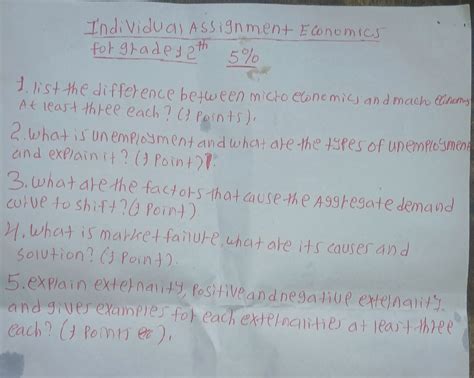 Individual Assignment Economics
for grade 12th 5%
1. list the difference between micro economics and macro economics
At least three each? (1 points).
2. what is unemployment and what are the types of unemployment
and explain it? (1 point)
3. what are the factors that cause the Aggregate demand
curve to shift? (1 point)
4. What is market failure, what are its causes and
solution? (1 point).
5. explain externality, positive and negative externality
and gives examples for each externalities at least three
each? (1 points).